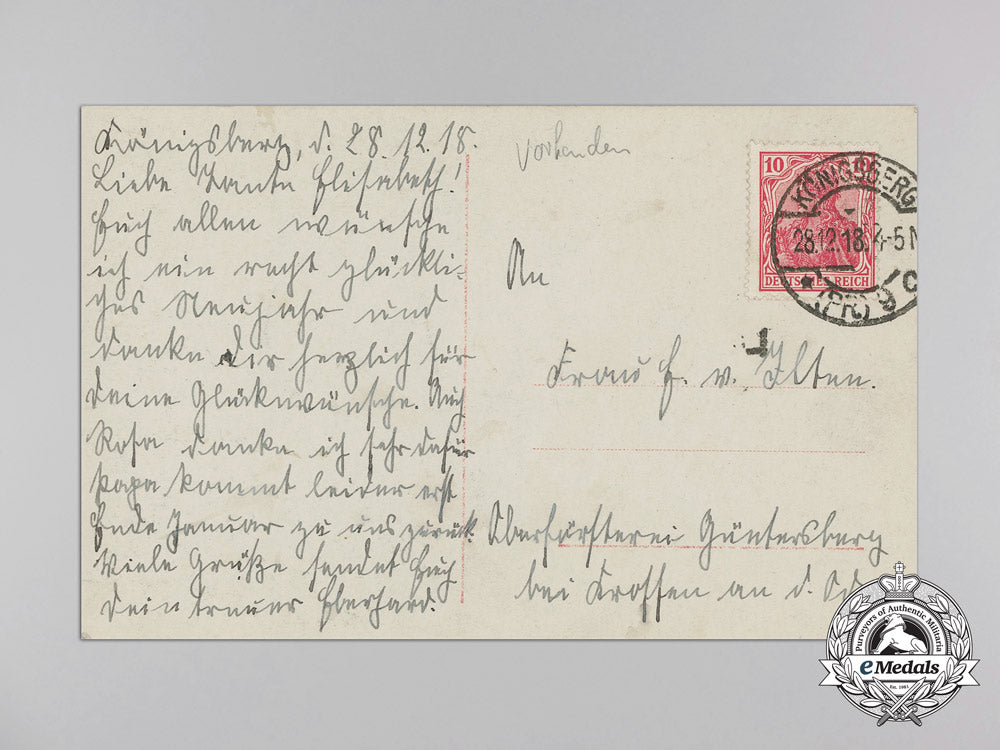 Königsberg, d. 28.12.18.
Liebe Tante Elisabeth!
Euch allen wünsche
ich ein recht glückli-
ches Neujahr und
danke Dir herzlich für
deine Glückwünsche. Auch
Rosa danke ich sehr dafür
Papa kommt leider erst
Ende Januar zu uns zurück.
Viele Grüße sendet Euch
Dein treuer Eberhard.
vorhanden
10
DEUTSCHES REICH
KÖNIGSBERG
28.12.18. 4-5N
* (PR) 9 c
An
Frau E. v. Ilten.
Oberförsterei Güntersberg
bei Krossen an d. Od
Purveyors of Authentic Militaria
eMedals
Est. 1981